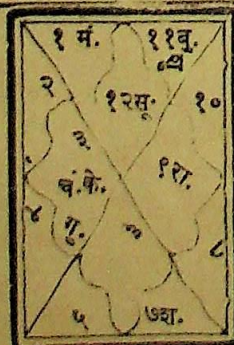 १ मं.
११बु.
शु
२
१२सू.
१०
३
चं.के.
९रा.
४
गु.
६
८
५
७श.